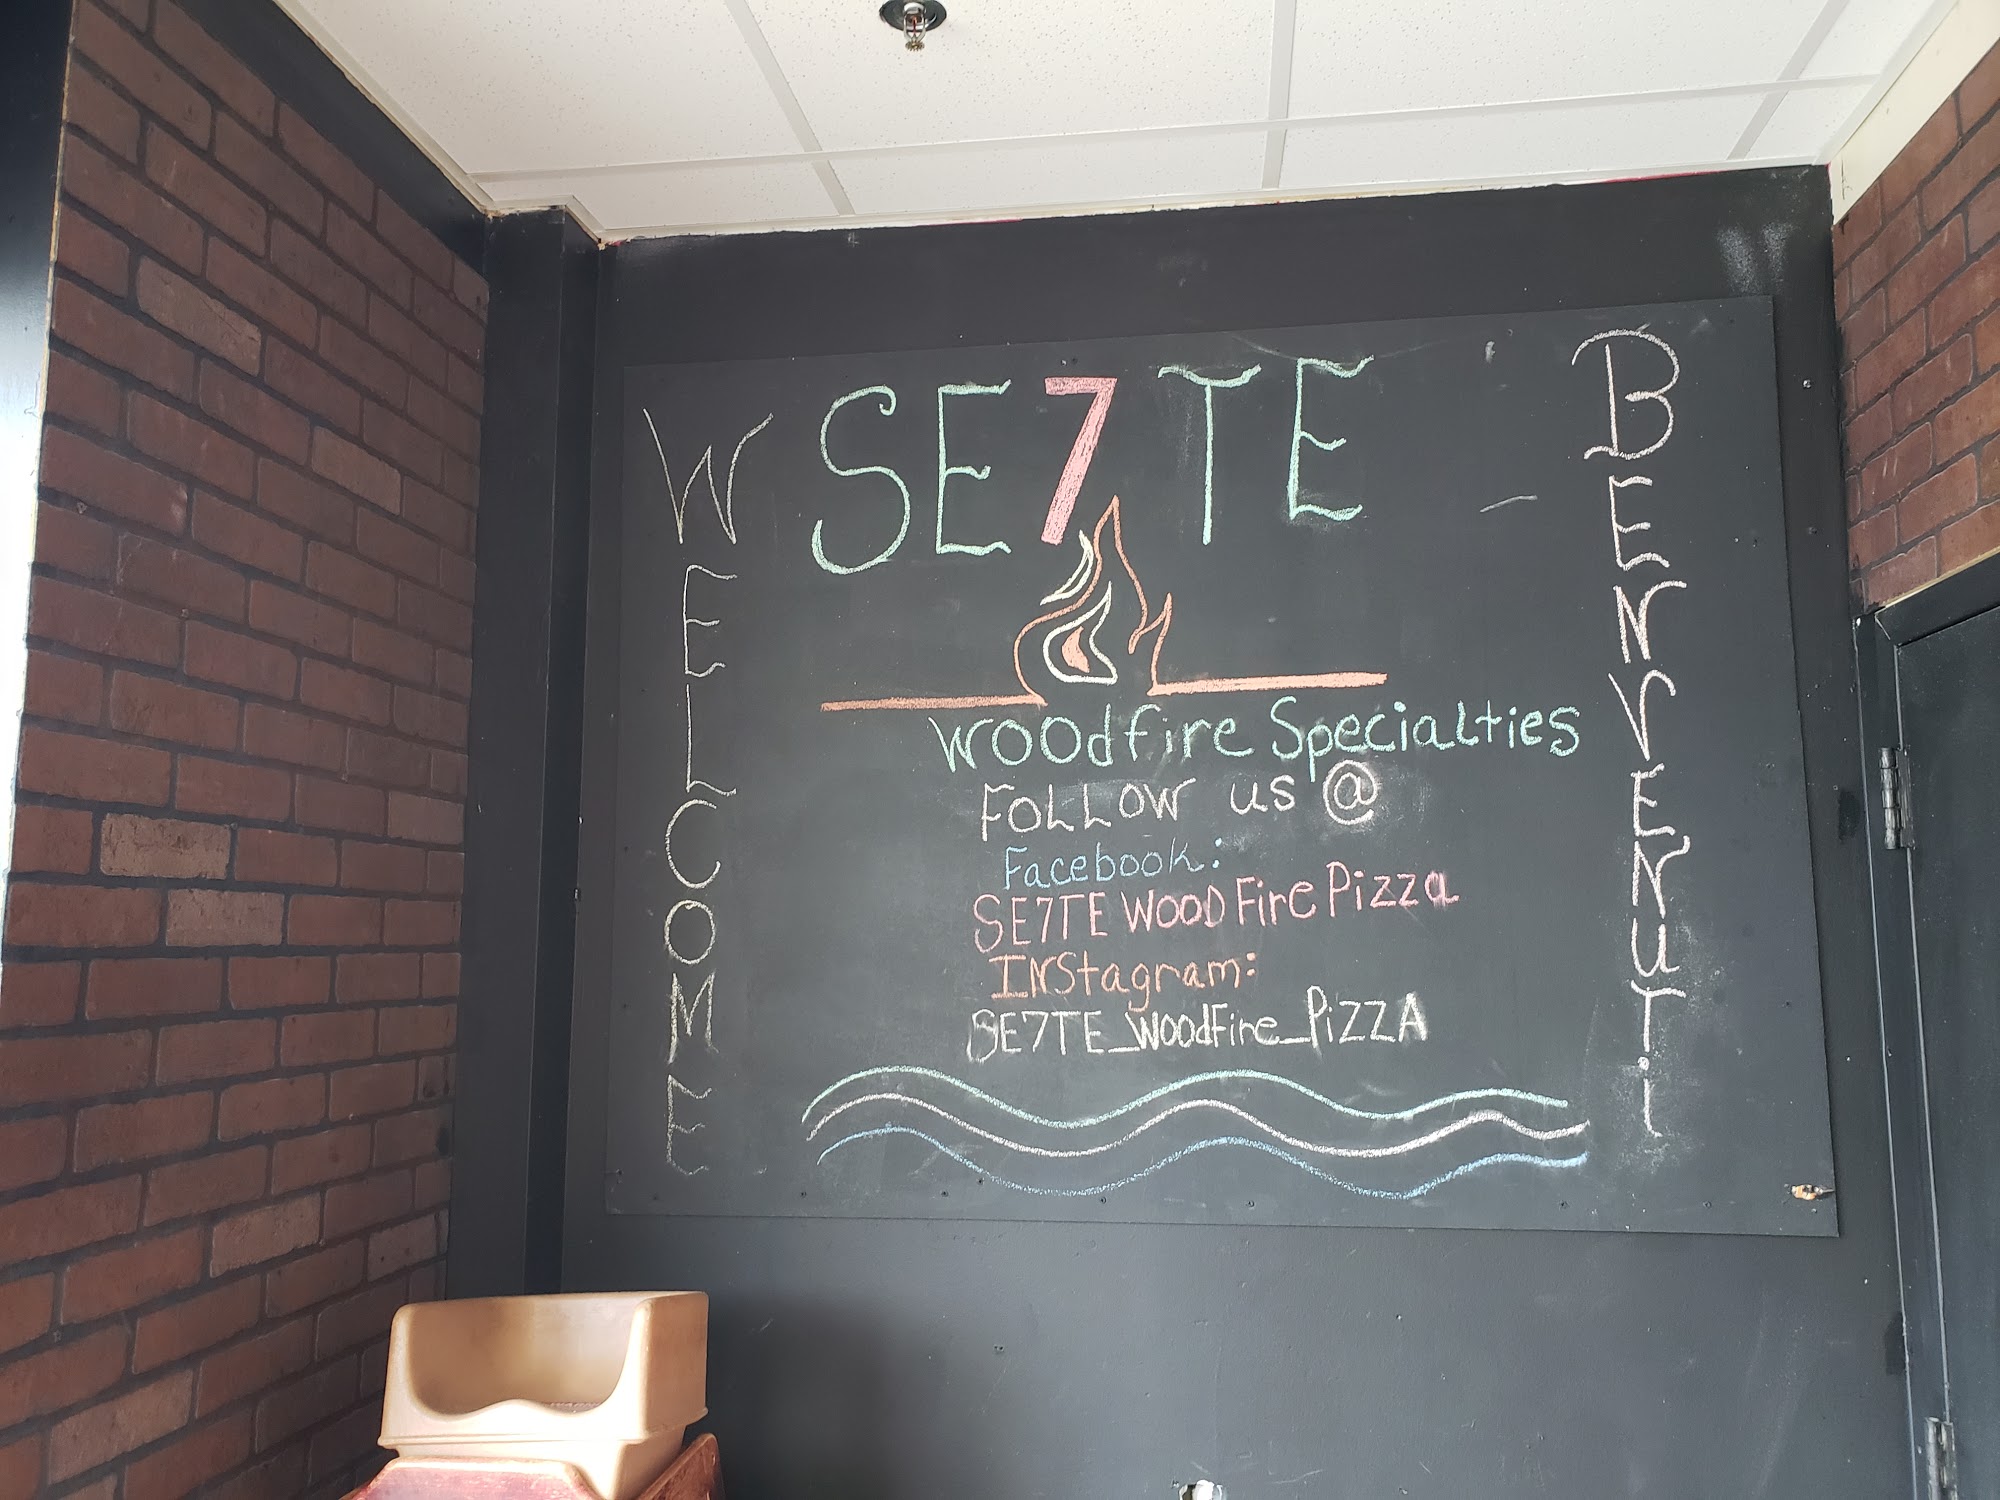 WELCOME
SE7TE
Woodfire Specialties
FOLLOW us @
Facebook:
SE7TE WOOD Fire Pizza
INStagram:
SE7TE_WoodFire_PiZZA
BENVENUTi